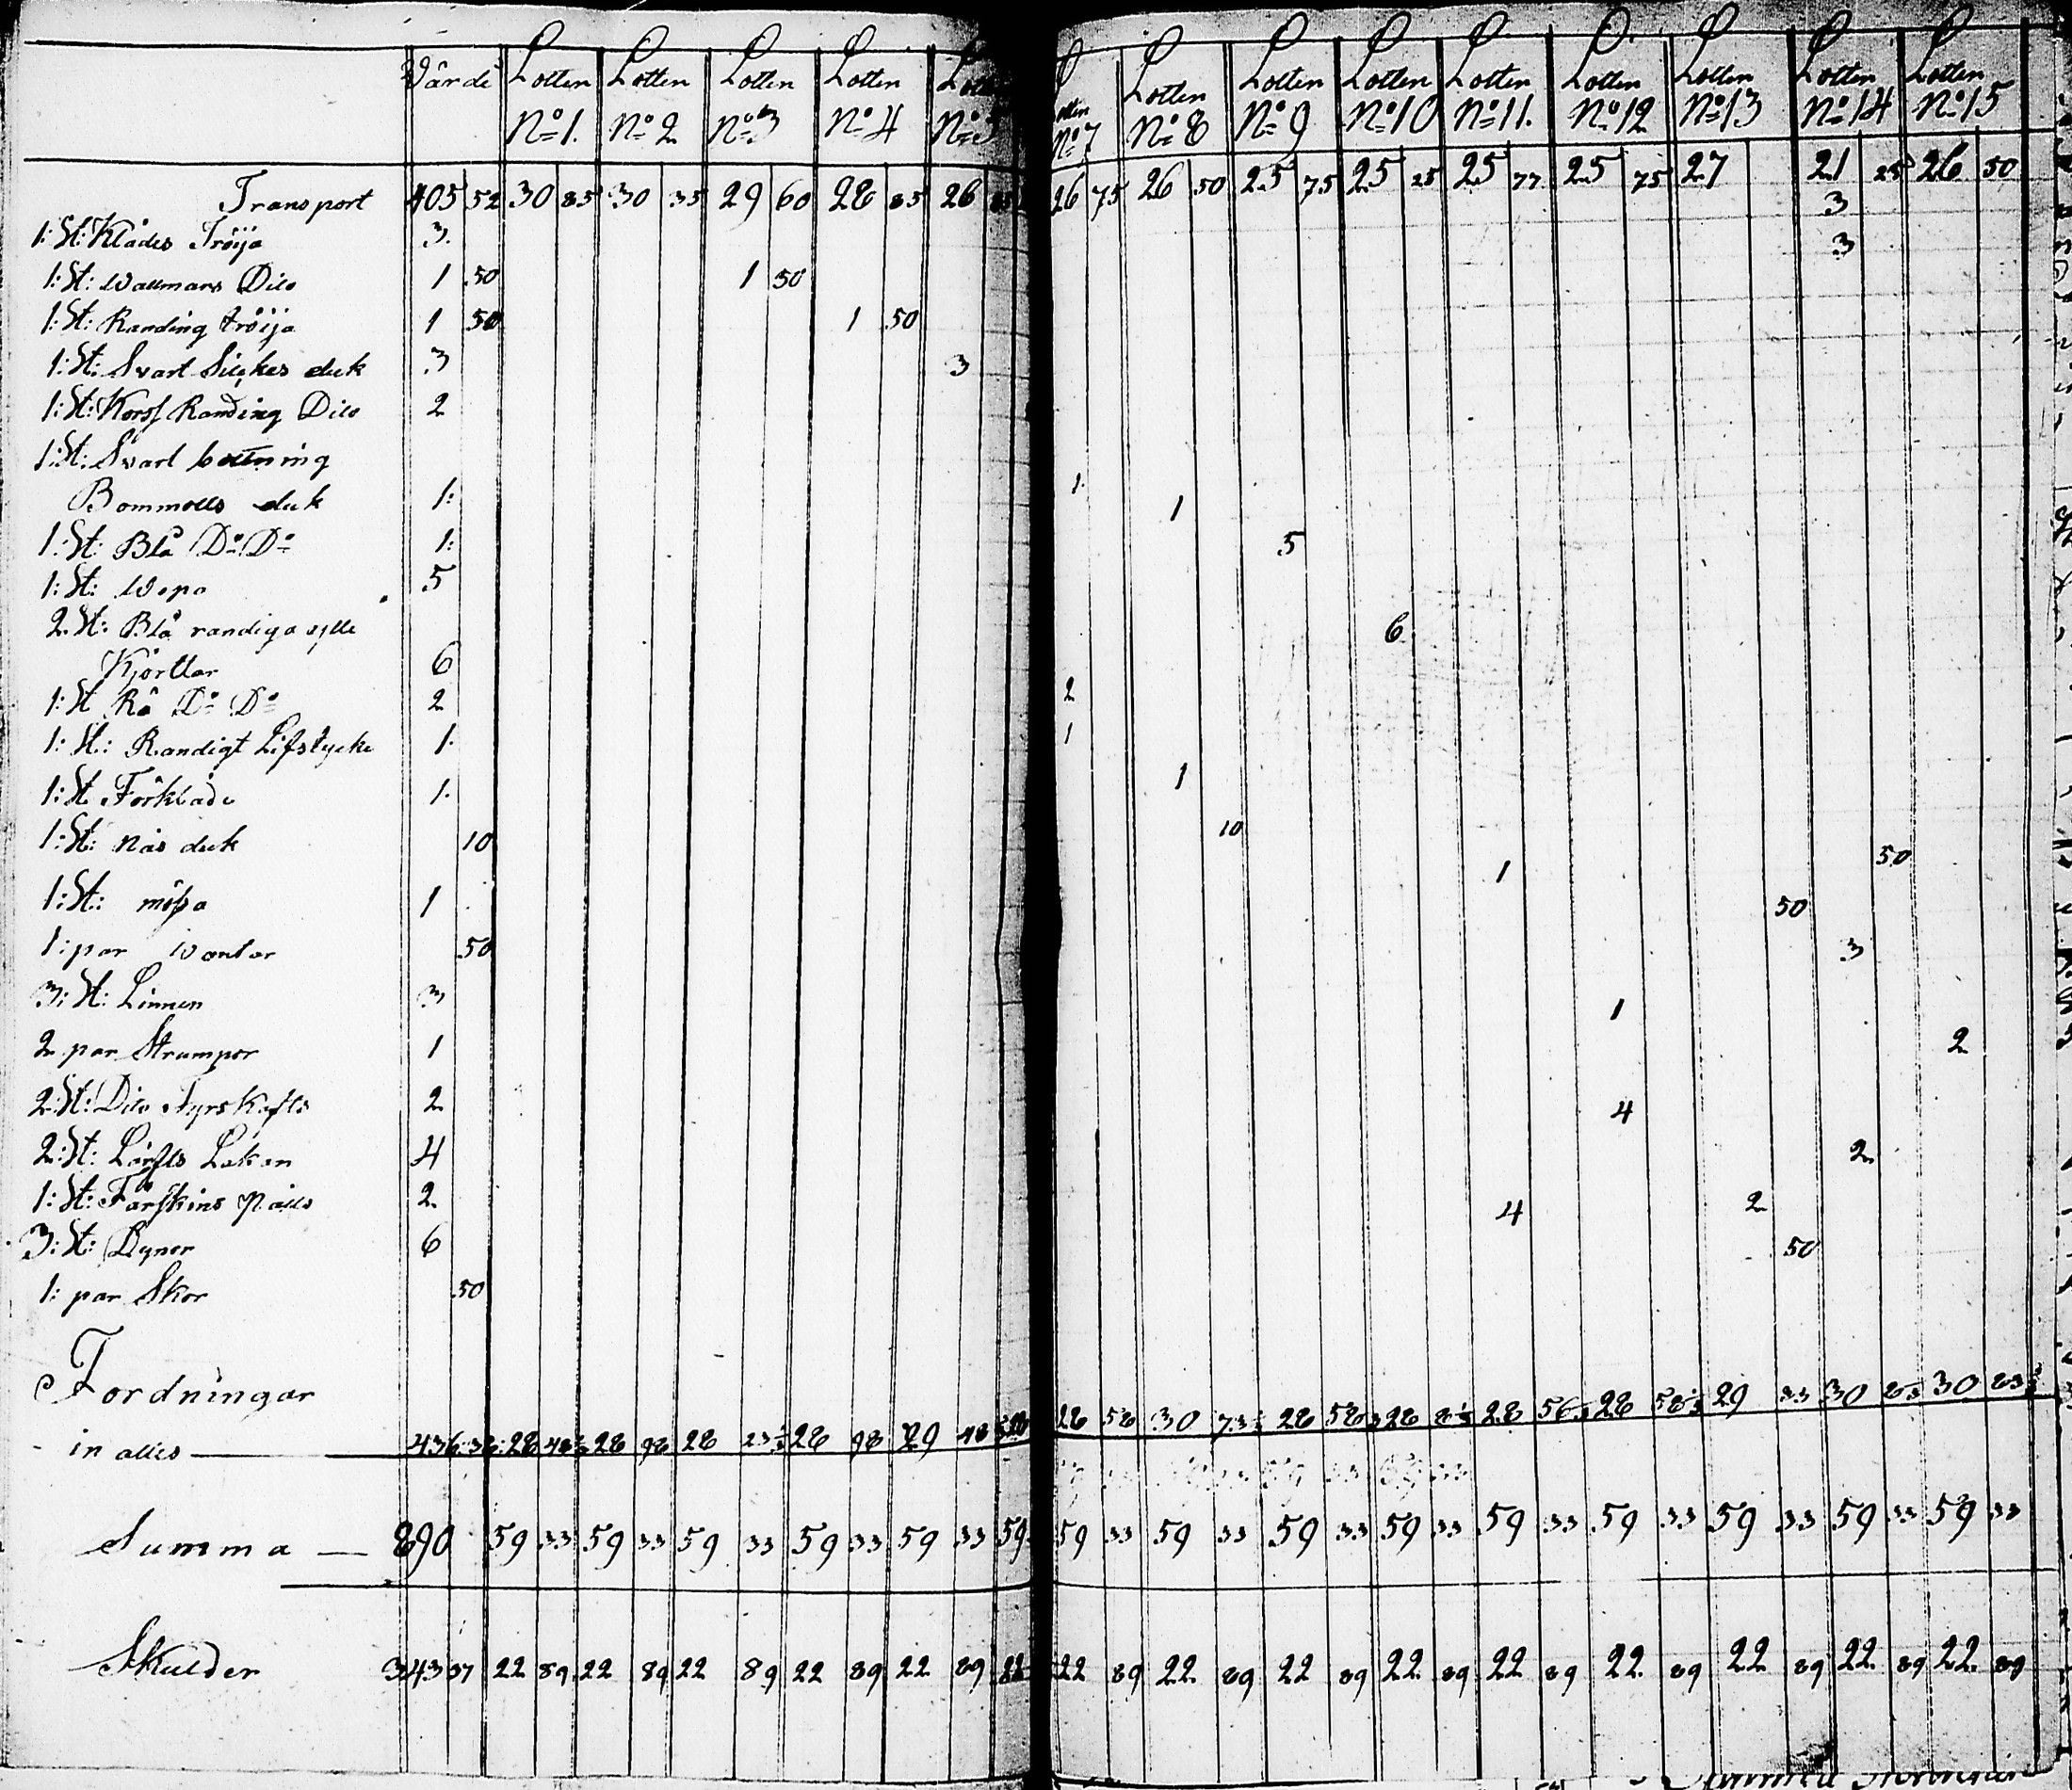 Värde Lotten Lotten Lotten Lotten Lotten Lotten Lotten Lotten Lotten Lotten Lotten Lotten Lotten
No 1. No 2 No 3 No 4 No 5 No 7 No 8 No 9 No 10 No 11. No 12 No 13 No 14 No 15
Transport 405 52 30 85 30 35 29 60 28 85 26 85 26 75 26 50 25 75 25 25 25 77 25 75 27 21 25 26 50
3
1: St: Klädes Tröija 3. 3
1: St: Wallmars Dito 1 50 1 50
1: St: Randing tröija 1 50 1 50
1: St: Svart Silckes duk 3 3
1: St: Korss Randing Dito 2
1: St: Svart bottning
Bommolls duk 1: 1. 1
1: St: Blå Do Do 1: 5
1: St: Wepa 5
2. St: Blå randiga ylle 6
Kjortlar 6
1: St Rå Do Do 2 2
1: St: Randigt Lifstycke 1. 1
1: St Förkläde 1. 1
1: St: näs duk 10 10
1: St: mössa 1 1 50
1: par Wantar 50 50 3
3: St: Linnen 3 1
2 par Strumpor 1 2
2: St: Dito Fyrskafts 2 4
2: St: Lärfts Lakan 4 2
1: St: Fårskins Fälls 2 4 2
3: St: Dynor 6 50
1: par Skor 50
Fordningar
in alles 436 38 28 48½ 28 98 28 23½ 28 98 29 48 28 58 30 73½ 28 58 28 8⅓ 28 56 28 58⅓ 29 33 30 30
Summa 890 59 33 59 33 59 33 59 33 59 33 59 59 33 59 33 59 33 59 33 59 33 59 33 59 33 59 33 59 33
Skulder 343 37 22 89 22 89 22 89 22 89 22 89 22 22 89 22 89 22 89 22 89 22 89 22 89 22 89 22 89 22 89